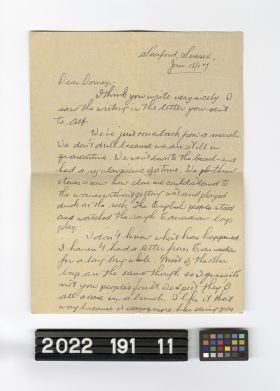 Seaford, Sussex,
Jan. 18/17
Dear Dorrey,-
I think you write very nicely. I
saw the writing in the letter you sent
to Alf.
We've just come back from a march.
We don't drill because we are still in
quarantine. We went down to the beach and
had a regular picnic of a time. We put
stones & saw how close we could stand to
the waves without getting wet and played
duck on the rock. The English people stood
and watched the rough Canadian boys
play.
I don't know what has happened.
I haven't had a letter from Canada
for a long long while. Most of the other
boys are the same though so I guess it's
not you people's fault. I expect they'll
all come in a bunch. I like it that
way because it seems more like seeing you
2022 191 11